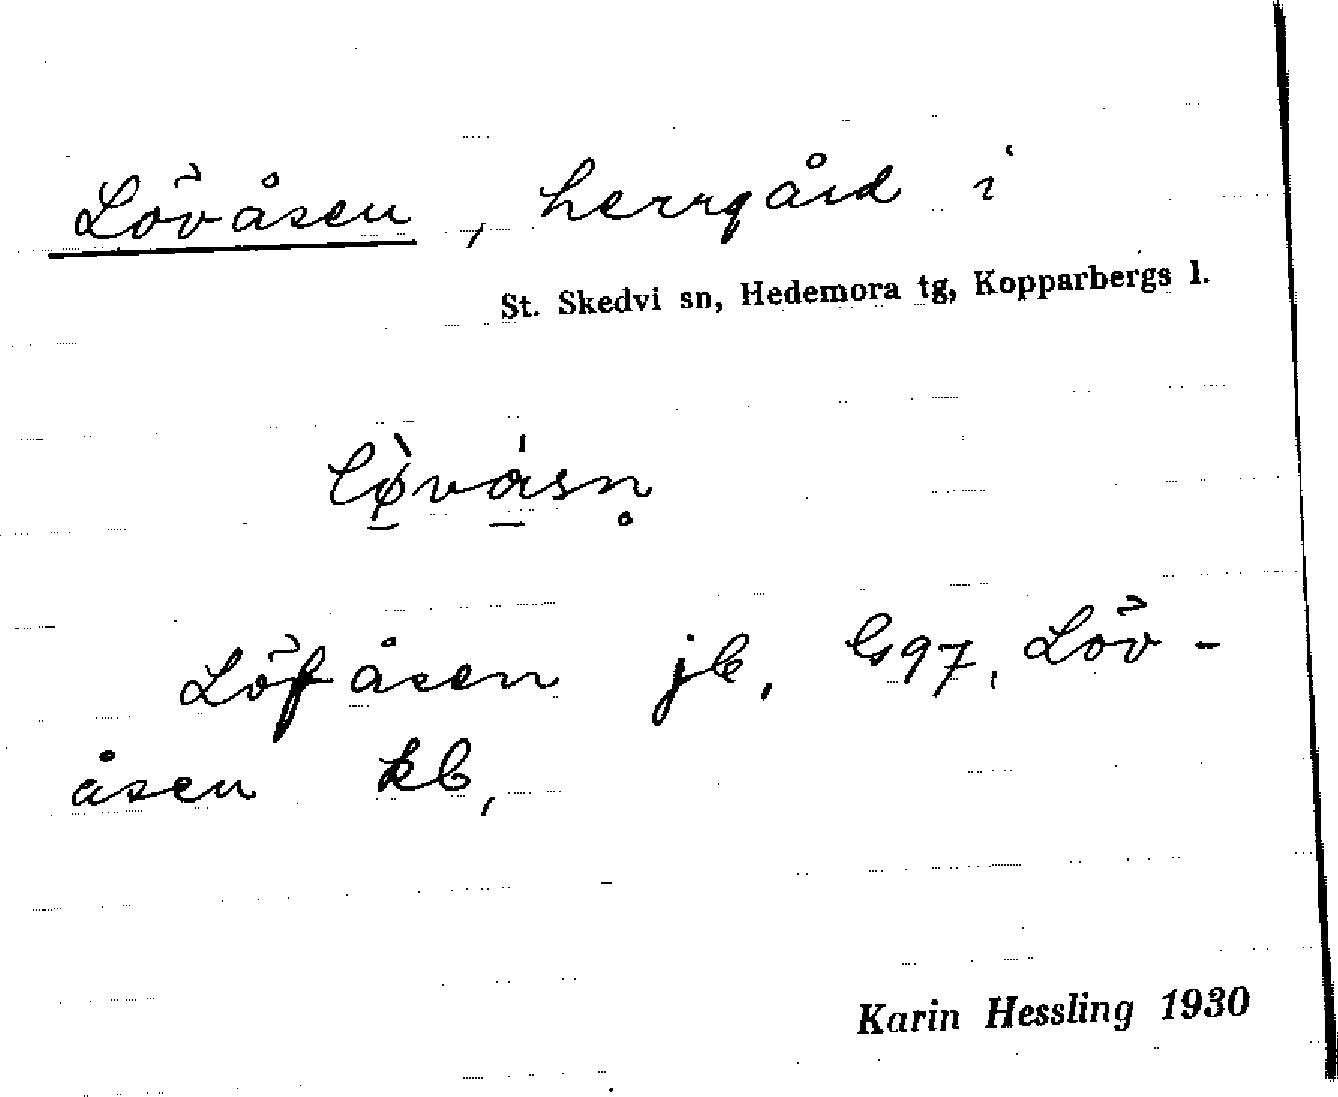 Lövåsen, herrgård i
St. Skedvi sn, Hedemora tg, Kopparbergs l.
Löfåsen jb, G97, Löv-
åsen kb,
Karin Hessling 1930